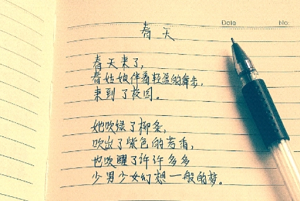 Date No.
春天
春天来了，
春姑娘伴着轻盈的舞步，
来到了校园。
她吹绿了柳条，
吹出了紫色的芳香，
也吹醒了许许多多
少男少女幻想一般的梦。